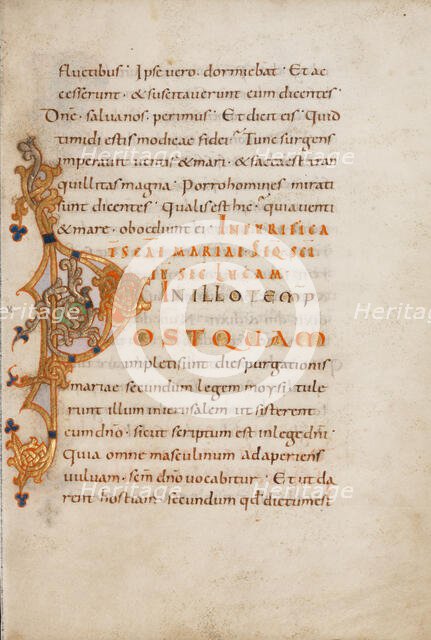 fluctibus. Ipse vero. dormiebat. Et ac
cesserunt. & suscitaverunt eum dicentes.
Dne. salvanos. perimus. Et dicit eis. Quid
timidi estis modicae fidei. Tunc surgens
imperavit ventis & mari. & facta est tran
quillitas magna. Porro homines mirati
sunt dicentes. Qualis est hic. quia venti
& mare. oboediunt ei. IN PURIFICA
SCAE MARIAE. SEQ. SCI
EU. SEC LUCAM.
IN ILLO TEMP
POSTQUAM
impleti sunt dies purgationis
mariae secundum legem moysi. tule
runt illum in ierusalem ut sisterent
eum dno. sicut scriptum est in lege dni
Quia omne masculinum adaperiens
vulvam. scm dno vocabitur. Et ut da
rent hostiam secundum qd dictum est
Heritage
Images